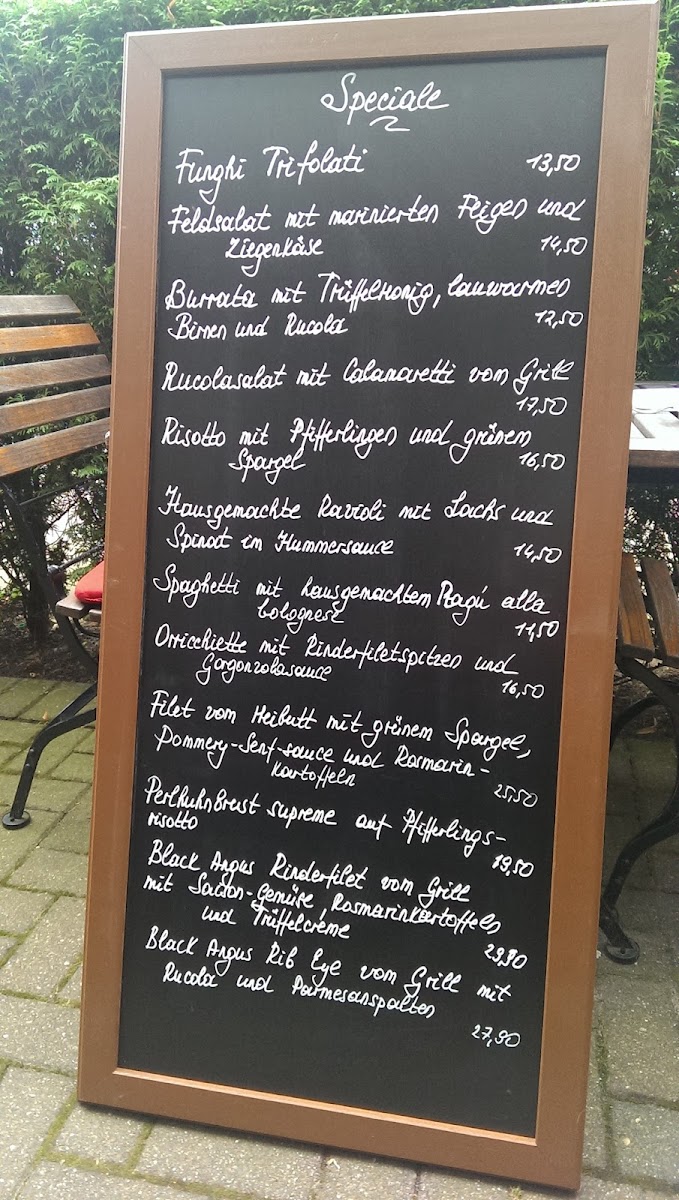 Speciale
Funghi Trifolati 13,50
Feldsalat mit marinierten Feigen und
Ziegenkäse 14,50
Burrata mit Trüffelhonig, lauwarmen
Birnen und Rucola 12,50
Rucolasalat mit Calamaretti vom Grill
17,50
Risotto mit Pfifferlingen und grünem
Spargel 16,50
Hausgemachte Ravioli mit Lachs und
Spinat im Hummersauce 14,50
Spaghetti mit hausgemachtem Ragú alla
bolognese 11,50
Orricchiette mit Rinderfiletspitzen und
Gorgonzolasauce 16,50
Filet vom Heibutt mit grünem Spargel,
Pommery-Senf-sauce und Rosmarin-
kartoffeln 25,50
Perlhuhnbrust supreme auf Pfifferlings-
risotto 19,50
Black Angus Rinderfilet vom Grill
mit Saison-Gemüse, Rosmarinkartoffeln
und Trüffelcrème 29,90
Black Angus Rib Eye vom Grill mit
Rucola und Parmesanspalten
27,90